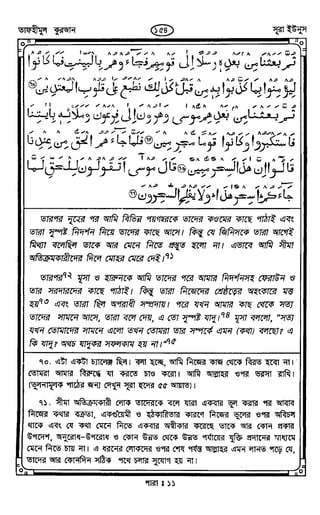 তাফহীমুল কুরআন
১৫৪
সূরা ইউনুস
ثُمَّ بَعَثْنَا مِنْ بَعْدِهٖ رُسُلًا إِلٰى قَوْمِهِمْ فَجَاءُوْهُمْ بِالْبَيِّنٰتِ فَمَا كَانُوْا
لِيُؤْمِنُوْا بِمَا كَذَّبُوْا بِهٖ مِنْ قَبْلُ كَذٰلِكَ نَطْبَعُ عَلٰى قُلُوْبِ الْمُعْتَدِيْنَ
ثُمَّ بَعَثْنَا مِنْ بَعْدِهِمْ مُّوْسٰى وَهٰرُوْنَ إِلٰى فِرْعَوْنَ وَمَلَا۟ئِهٖ بِاٰيٰتِنَا
فَاسْتَكْبَرُوْا وَكَانُوْا قَوْمًا مُّجْرِمِيْنَ فَلَمَّا جَاءَهُمُ الْحَقُّ مِنْ عِنْدِنَا
قَالُوْٓا إِنَّ هٰذَا لَسِحْرٌ مُّبِيْنٌ قَالَ مُوْسٰٓى أَتَقُوْلُوْنَ لِلْحَقِّ لَمَّا
جَاءَكُمْ أَسِحْرٌ هٰذَا وَلَا يُفْلِحُ السّٰحِرُوْنَ
তারপর নূহের পর আমি বিভিন্ন পয়গম্বরকে তাদের কওমের কাছে পাঠাই এবং
তারা সুস্পষ্ট নিদর্শন নিয়ে তাদের কাছে আসে। কিন্তু যে জিনিসকে তারা আগেই
মিথ্যা বলেছিল তাকে আর মেনে নিতে প্রস্তুত হলো না। এভাবে আমি সীমা
অতিক্রমকারীদের দিলে মোহর মেরে দেই।৭১
তারপর৭২ মূসা ও হারুনকে আমি তাদের পরে আমার নিদর্শনসহ ফেরাউন ও
তার সরদারদের কাছে পাঠাই। কিন্তু তারা নিজেদের শ্রেষ্ঠত্বের অহংকারে মত্ত
হয়৭৩ এবং তারা ছিল অপরাধী সম্প্রদায়। পরে যখন আমার কাছ থেকে সত্য
তাদের সামনে আসে, তারা বলে দেয়, এ তো সুস্পষ্ট যাদু।৭৪ মূসা বললো, "সত্য
যখন তোমাদের সামনে এলো তখন তোমরা তার সম্পর্কে এমন (কথা) বলছো? এ
কি যাদু? অথচ যাদুকর সফলকাম হয় না।"৭৫
৭০. এটা একটা চ্যালেঞ্জ ছিল। বলা হচ্ছে, আমি নিজের কাজ থেকে বিরত হবো না।
তোমরা আমার বিরুদ্ধে যা করতে চাও করো। আমি আল্লাহর ওপর ভরসা রাখি।
(তুলনামূলক পাঠের জন্য দেখুন সূরা হূদের ৫৫ আয়াত)।
৭১. সীমা অতিক্রমকারী লোক তাদেরকে বলে যারা একবার ভুল করার পর আবার
নিজের কথার বক্রতা, একগুঁয়েমী ও হঠকারিতার কারণে নিজের ভুলের ওপর অবিচল
থাকে এবং যে কথা মেনে নিতে একবার অস্বীকার করেছে তাকে আর কোন প্রকার
উপদেশ, অনুরোধ-উপরোধ ও কোন উন্নত থেকে উন্নত পর্যায়ের যুক্তি প্রদানের মাধ্যমে
মেনে নিতে চায় না। এ ধরনের লোকদের ওপর শেষ পর্যন্ত আল্লাহর এমন লানত পড়ে যে,
তাদের আর কোনদিন সঠিক পথে চলার সুযোগ হয় না।
পারা : ১১